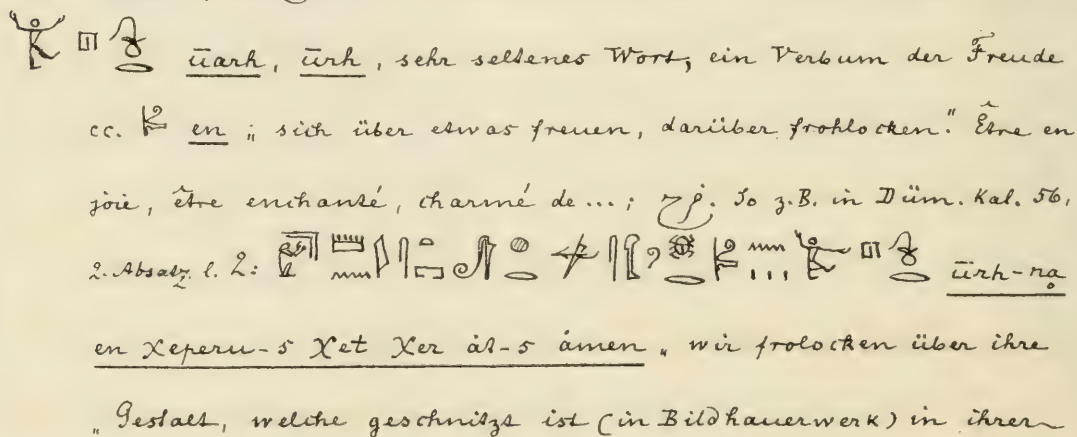 ūarh, ūrh, sehr seltenes Wort, ein Verbum der Freude
cc. en „ sich über etwas freuen, darüber frohlocken." Être en
joie, être enchanté, charmé de ...; So z.B. in Düm. Kal. 56,
2. Absatz. l. 2: ūrh-na
en χeperu-s χet χer ȧt-s ȧmen „ wir frolocken über ihre
„ Gestalt, welche geschnitzt ist (in Bildhauerwerk) in ihrer